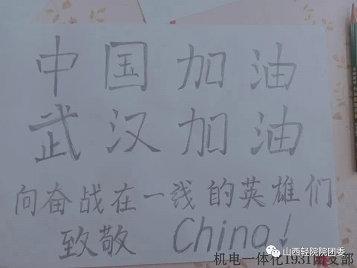 中国加油
武汉加油
向奋战在一线的英雄们
致敬 China!
山西轻院院团委
机电一体化1931团支部